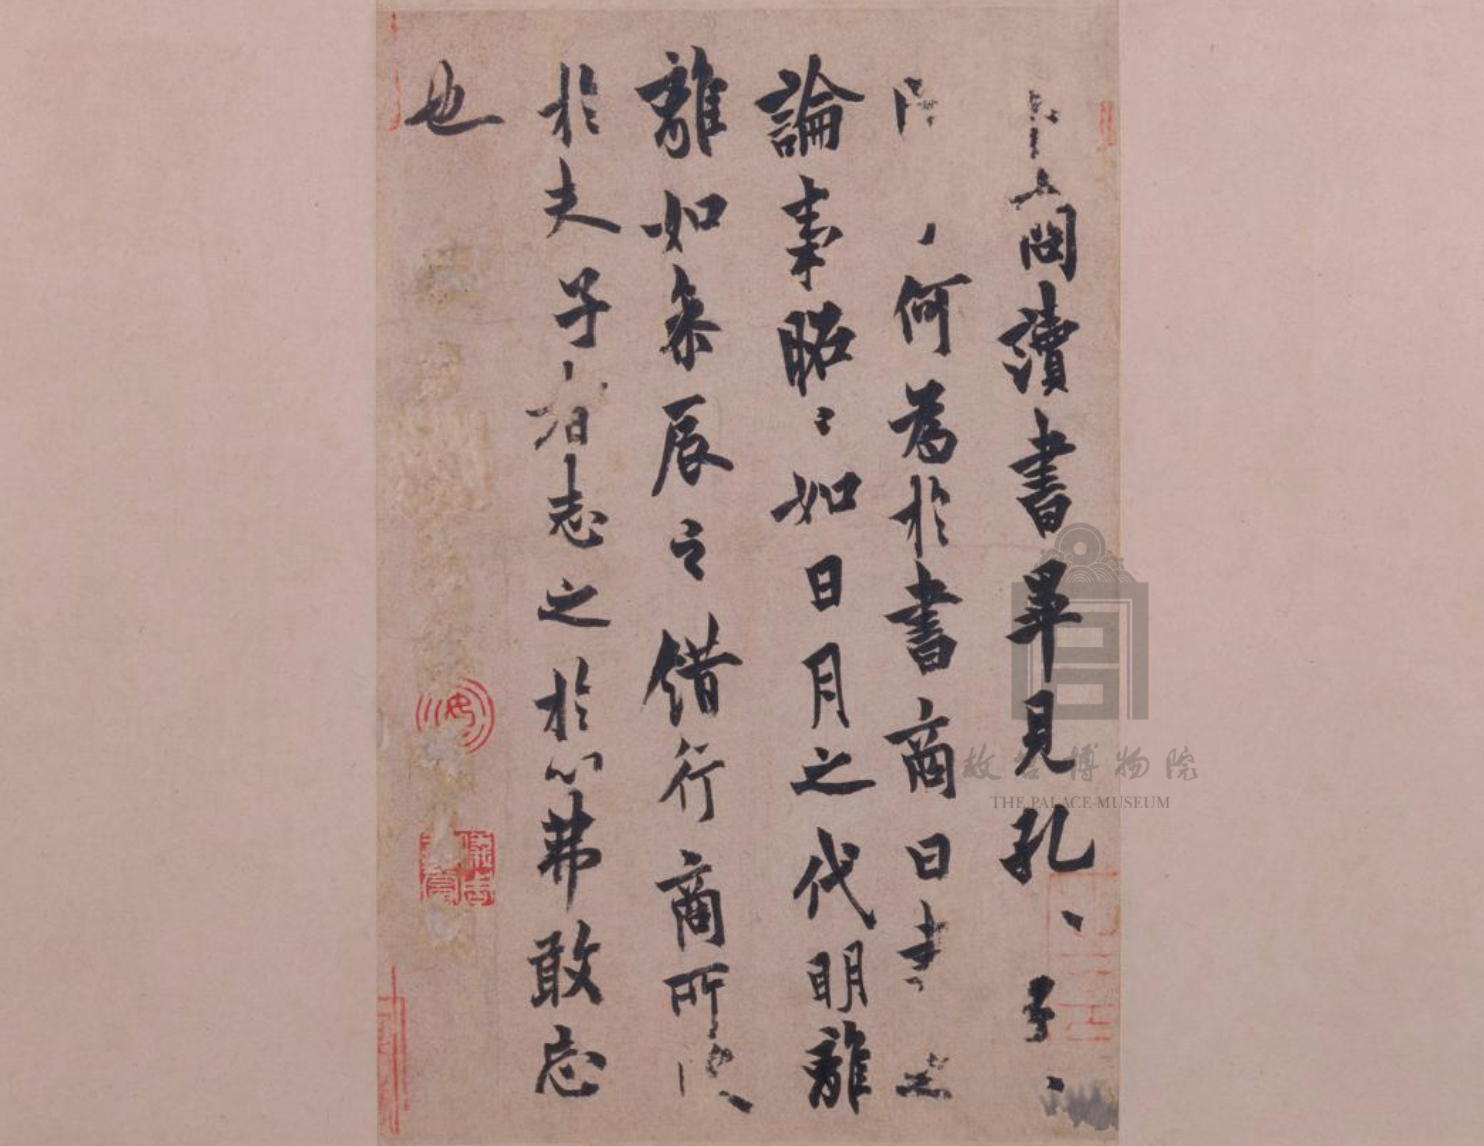 卜商讀書畢見孔〻子〻
問〻何為於書商曰書之
論事昭〻如日月之代明離
離如參辰之錯行商所受
於夫子者志之於心弗敢忘
也
故宫博物院
THE PALACE MUSEUM